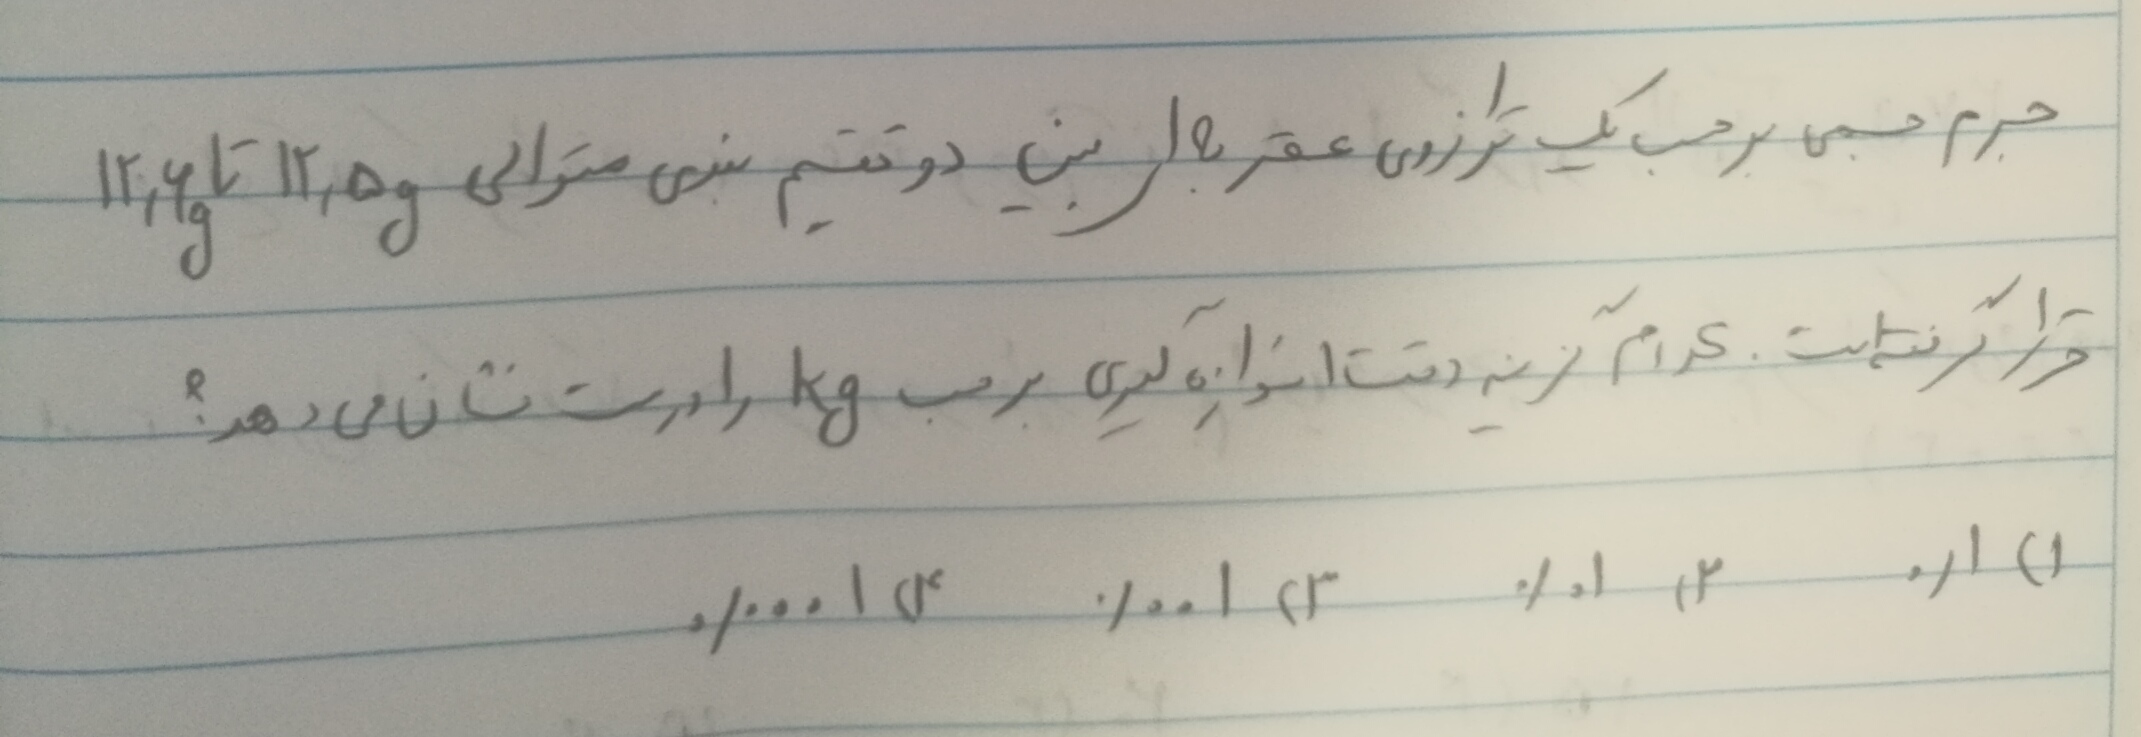 جرم جسمی برحسب یک ترازوی عقربه‌ای بین دو تقسیم بندی متوالی ۱۲٫۵g تا ۱۲٫۶g
قرار گرفته است. کدام گزینه دقت اندازه گیری برحسب kg را درست نشان می دهد؟
۱) ۰٫۱ ۲) ۰٫۰۱ ۳) ۰٫۰۰۱ ۴) ۰٫۰۰۰۱